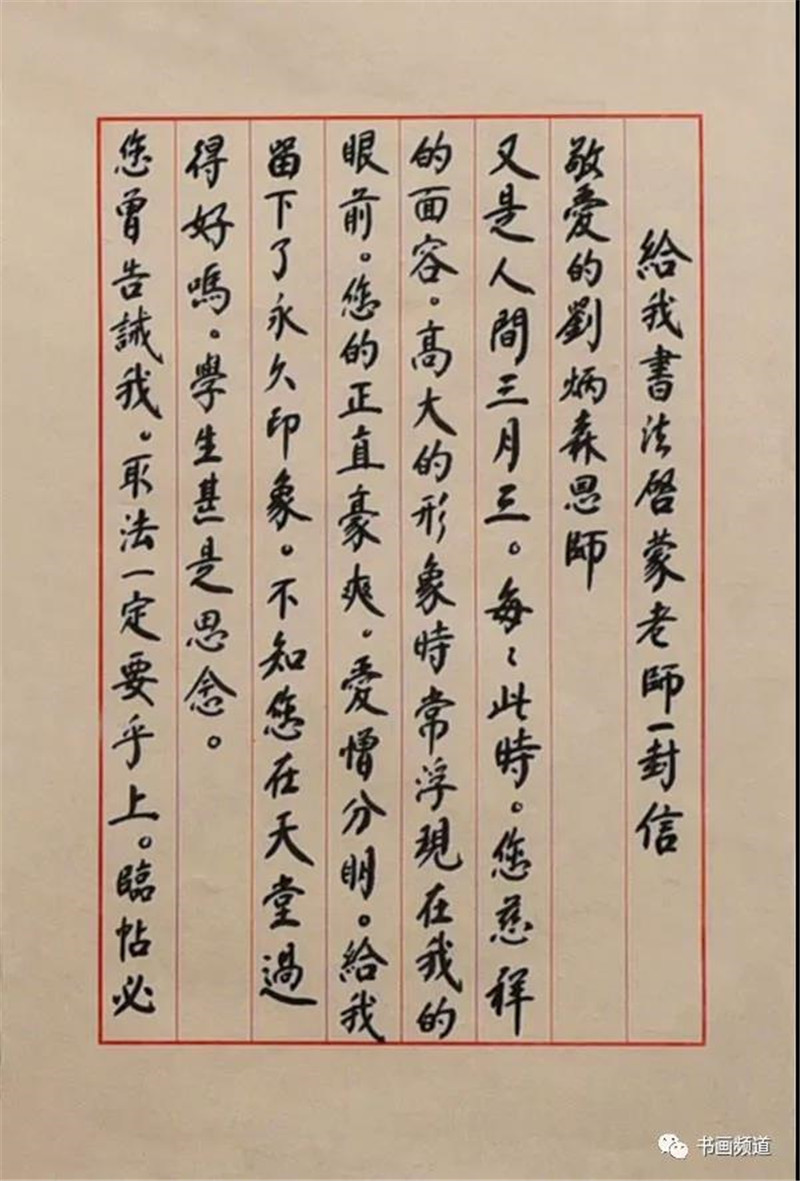 給我書法啓蒙老師一封信
敬愛的劉炳森恩師
又是人間三月三。每〻此時。您慈祥
的面容。高大的形象時常浮現在我的
眼前。您的正直豪爽。愛憎分明。給我
留下了永久印象。不知您在天堂過
得好嗎。學生甚是思念。
您曾告誡我。取法一定要乎上。臨帖必
书画频道